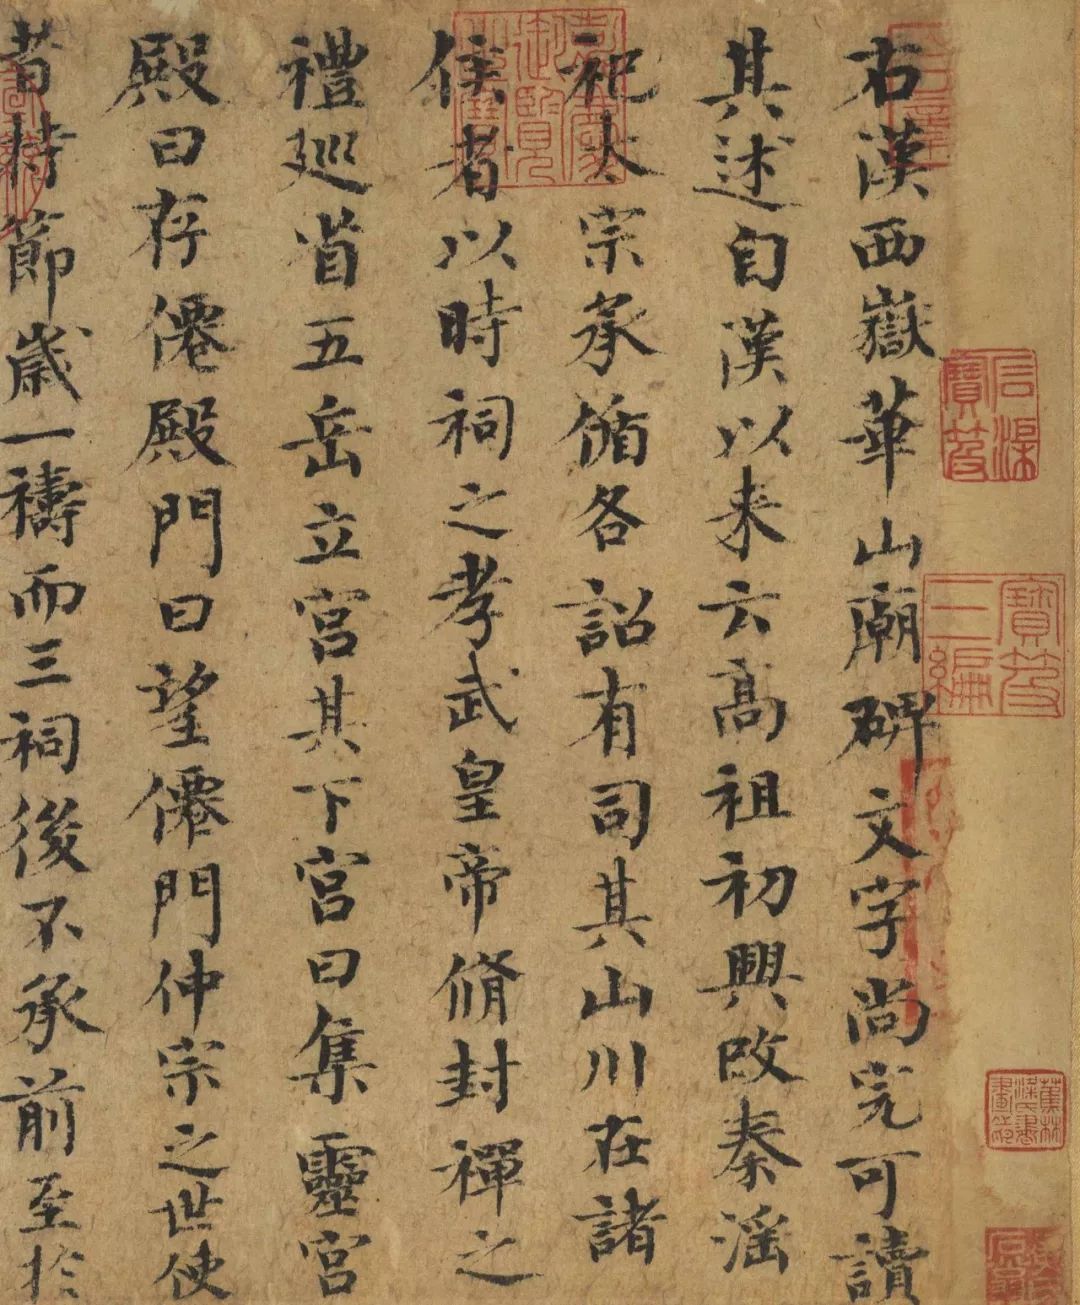 石渠寶笈
寶笈三編
蕉林梁氏書畫之印
右漢西嶽華山廟碑文字尚完可讀
其述自漢以来云高祖初興改秦淫
祀太宗承循各詔有司其山川在諸
嘉慶御覽之寶
侯者以時祠之孝武皇帝脩封禪之
禮廵省五岳立宫其下宫曰集靈宫
殿曰存僊殿門曰望僊門仲宗之世使
者持節歳一禱而三祠後不承前至於